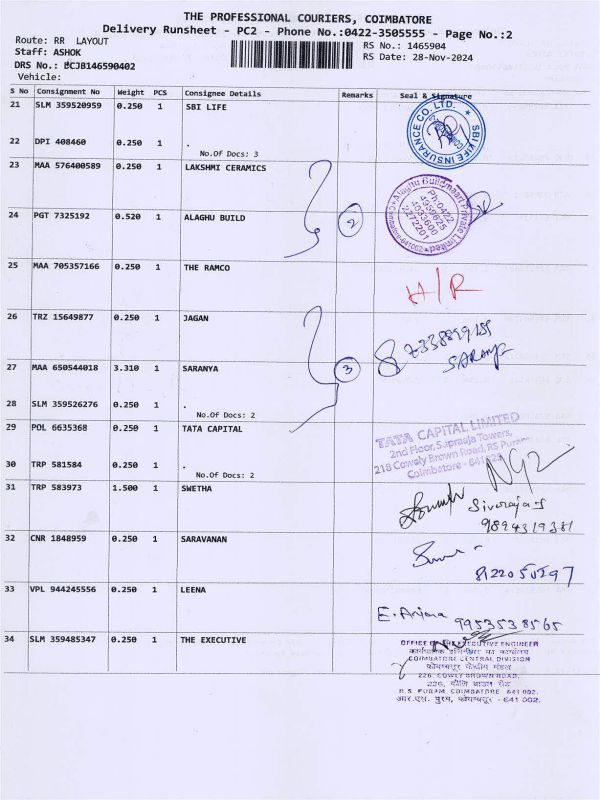 THE PROFESSIONAL COURIERS, COIMBATORE
Delivery Runsheet - PC2 - Phone No.:0422-3505555 - Page No.:2
Route: RR LAYOUT
RS No.: 1465904
Staff: ASHOK
RS Date: 28-Nov-2024
DRS No.: BCJB146590402
Vehicle:
S No Consignment No Weight PCS Consignee Details Remarks Seal & Signature
21 SLM 359520959 0.250 1 SBI LIFE
SBI LIFE INSURANCE CO. LTD.
22 DPI 408460 0.250 1 .
No.Of Docs: 3
23 MAA 576400589 0.250 1 LAKSHMI CERAMICS
Ph:0422
4959625
4033600
2272201
24 PGT 7325192 0.520 1 ALAGHU BUILD 2
25 MAA 705357166 0.250 1 THE RAMCO
H/R
26 TRZ 15649877 0.250 1 JAGAN
27 MAA 650544018 3.310 1 SARANYA 3
28 SLM 359526276 0.250 1 .
No.Of Docs: 2
29 POL 6635368 0.250 1 TATA CAPITAL
TATA CAPITAL LIMITED
2nd Floor, Supraaja Towers,
218 Cowely Brown Road, RS Puram
Coimbatore -
30 TRP 581584 0.250 1 .
No.Of Docs: 2
31 TRP 583973 1.500 1 SWETHA
9894319381
32 CNR 1848959 0.250 1 SARAVANAN
33 VPL 944245556 0.250 1 LEENA
E. Anjana 9953538565
34 SLM 359485347 0.250 1 THE EXECUTIVE
OFFICE OF THE EXECUTIVE ENGINEER
COIMBATORE CENTRAL DIVISION
कोयम्बत्तूर केंद्रीय मंडल
226, COWLY BROWN ROAD,
226, कौलि ब्राउन रोड
R.S. PURAM, COIMBATORE - 641 002.
आर.एस. पुरम, कोयम्बत्तूर - 641 002.